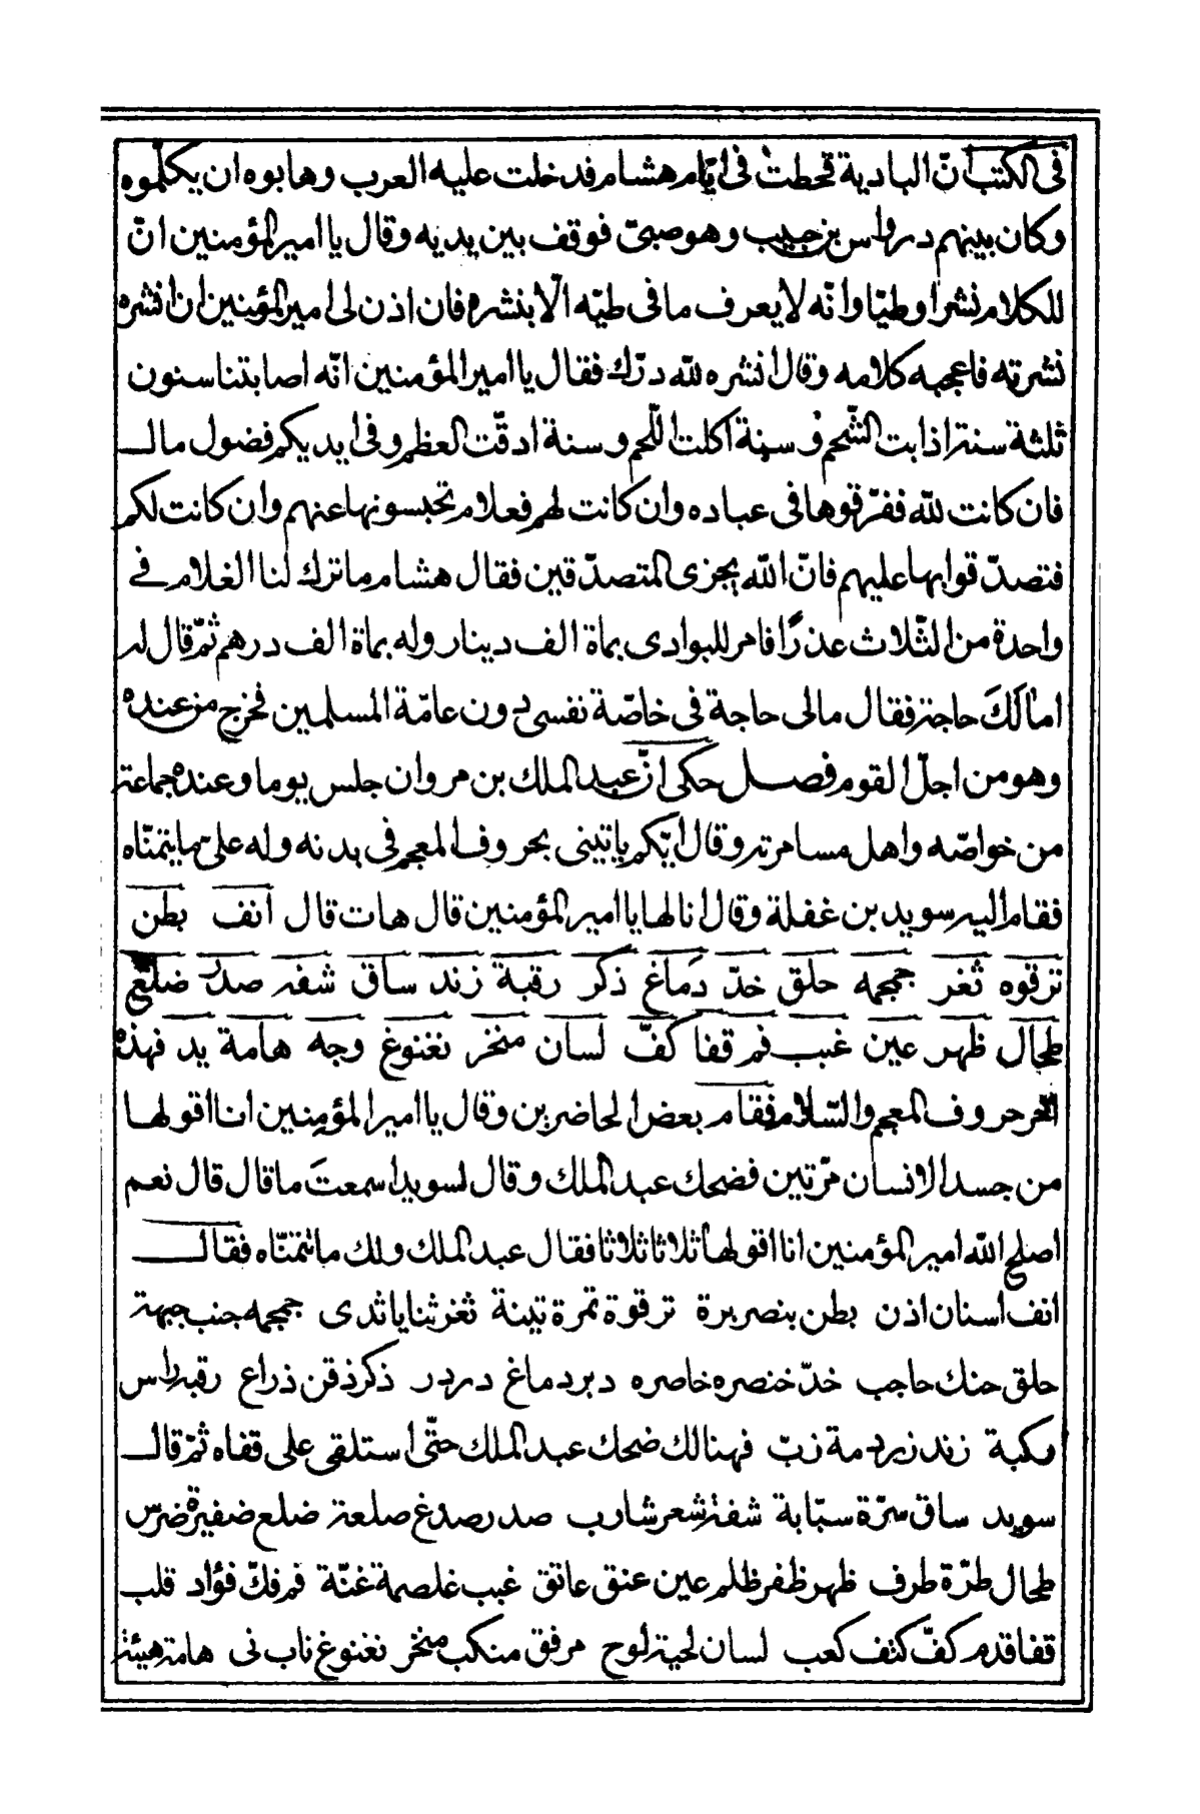 فى الكتب انّ البادية قحطت فى ايّام هشام فدخلت عليه العرب وهابوه ان يكلّموه
وكان بينهم درواس بن حبيب وهو صبىّ فوقف بين يديه وقال يا امير المؤمنين انّ
للكلام نشرا وطيّا وانّه لا يعرف ما فى طيّه الّا بنشره فان اذن لى امير المؤمنين ان انشره
نشرته فاعجبه كلامه وقال انشره لله درّك فقال يا امير المؤمنين انّه اصابتنا سنون
ثلثة سنة اذابت الشّحم وسنة اكلت اللّحم وسنة ادقّت العظم وفى ايديكم فضول مال
فان كانت لله ففرّقوها فى عباده وان كانت لهم فعلام تحبسونها عنهم وان كانت لكم
فتصدّقوا بها عليهم فانّ الله يجزى المتصدّقين فقال هشام ما ترك لنا الغلام فى
واحدة من الثّلاث عذرًا فامر للبوادى بماة الف دينار وله بماة الف درهم ثمّ قال له
اما لَكَ حاجة فقال مالى حاجة فى خاصّة نفسى دون عامّة المسلمين فخرج من عنده
وهو من اجلّ القوم فصل حكى انّ عبد الملك بن مروان جلس يوما وعنده جماعة
من خواصّه واهل مسامرته وقال ايّكم ياتينى بحروف المعجم فى بدنه وله علىّ ما يتمنّاه
فقام اليه سويد بن غفلة وقال انا لها يا امير المؤمنين قال هات قال انف بطن
ترقوه ثغر جمجمه حلق خدّ دماغ ذكر رقبة زند ساق شفه صدر ضلع
طحال ظهر عين غبب فم قفا كفّ لسان منخر نغنوغ وجه هامة يد فهذه
اخر حروف المعجم والسّلام فقام بعض الحاضرين وقال يا امير المؤمنين انا اقولها
من جسد الانسان مرّتين فضحك عبد الملك وقال لسويد اسمعتَ ما قال قال نعم
اصلح الله امير المؤمنين انا اقولها ثلاثا ثلاثا فقال عبد الملك ولك ما تتمنّاه فقال
انف اسنان اذن بطن بنصر برة ترقوة تمرة تينة ثغر ثنايا ثدى جمجمه جنب جبهة
حلق حنك حاجب خدّ خنصره خاصره دبر دماغ دردر ذكر ذقن ذراع رقبه راس
ركبة زند زردمة زبّ فهنالك ضحك عبد الملك حتّى استلقى على قفاه ثمّ قال
سويد ساق سرّة سبّابة شفة شعر شارب صدر صدغ صلعة ضلع ضفيرة ضرس
طحال طرّة طرف ظهر ظفر ظلم عين عنق عاتق غبب غلصمة غنّة فم فكّ فؤاد قلب
قفا قدم كفّ كتف كعب لسان لحية لوح مرفق منكب منخر نغنوغ ناب نى هامة هيئة